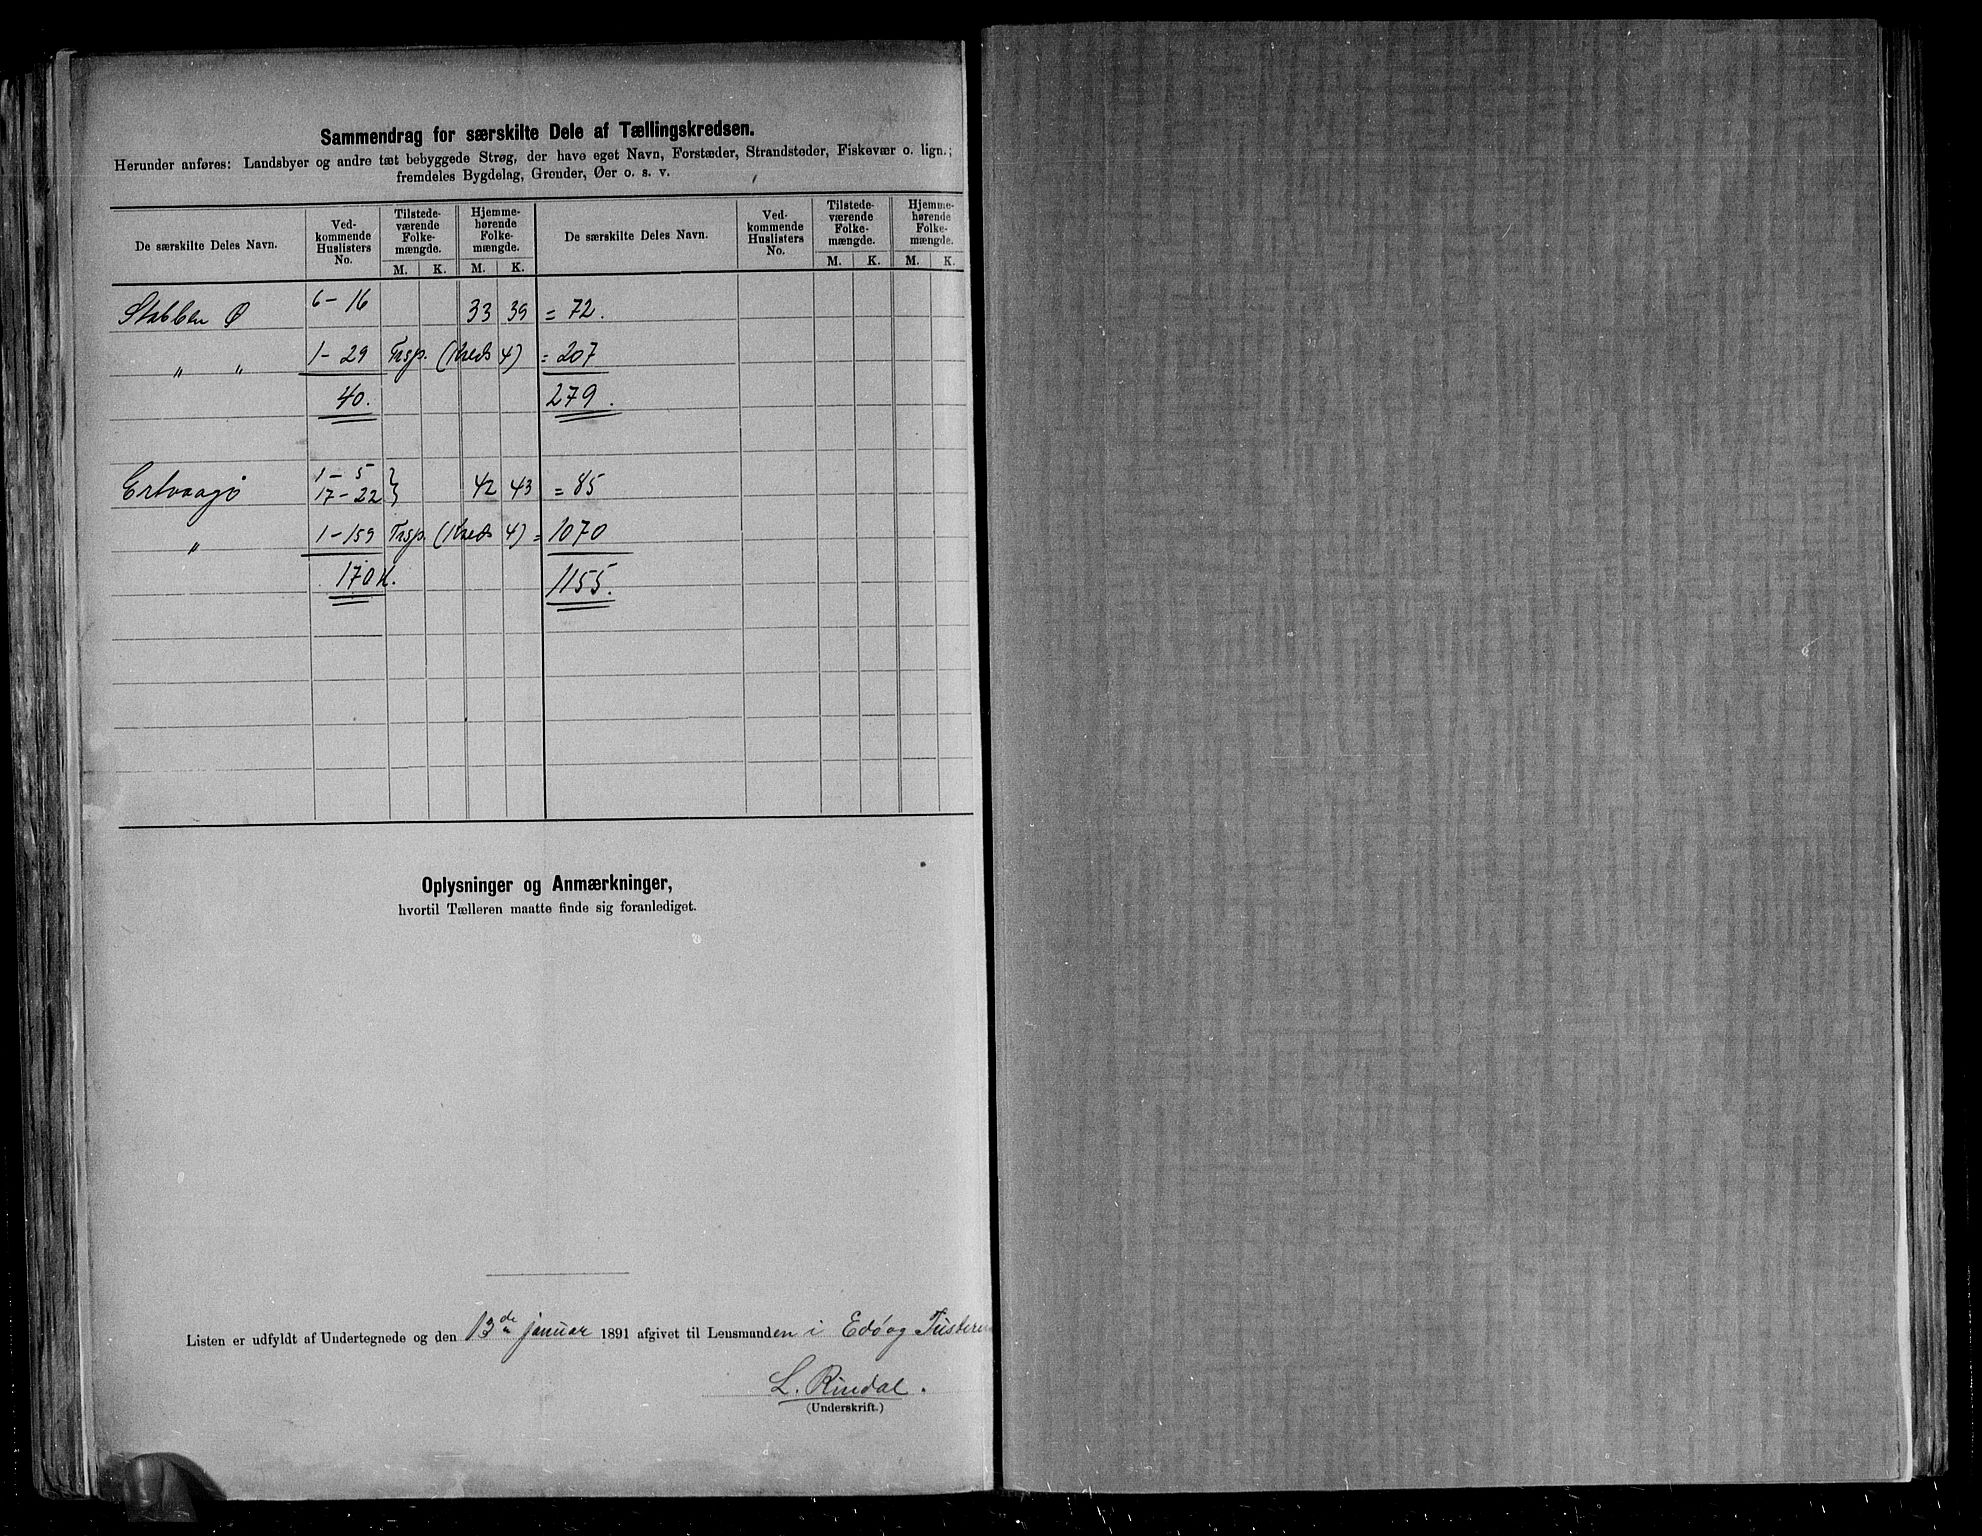 Sammendrag for særskilte Dele af Tællingskredsen.
Herunder anføres: Landsbyer og andre tæt bebyggede Strøg, der have eget Navn, Forstæder, Strandsteder, Fiskevær o. lign.;
fremdeles Bygdelag, Grender, Øer o. s. v.
De særskilte Deles Navn. Ved-kommende Huslisters No. Tilstede-værende Folke-mængde. Hjemme-hørende Folke-mængde. De særskilte Deles Navn. Ved-kommende Huslisters No. Tilstede-værende Folke-mængde. Hjemme-hørende Folke-mængde.
M. K. M. K. M. K. M. K.
Stabben Ø 6-16 33 39 = 72.
" " 1-29 Trsp. (Kreds 4) = 207
40. 279.
Ertvaagø 1-5 17-22 } 42 43 = 85
" 1-159 Trsp. (Kreds 4) = 1070
170 H. 1155.
Oplysninger og Anmærkninger,
hvortil Tælleren maatte finde sig foranlediget.
Listen er udfyldt af Undertegnede og den 13de januar 1891 afgivet til Lensmanden i Edö og Tusteren
L. Rindal.
(Underskrift.)